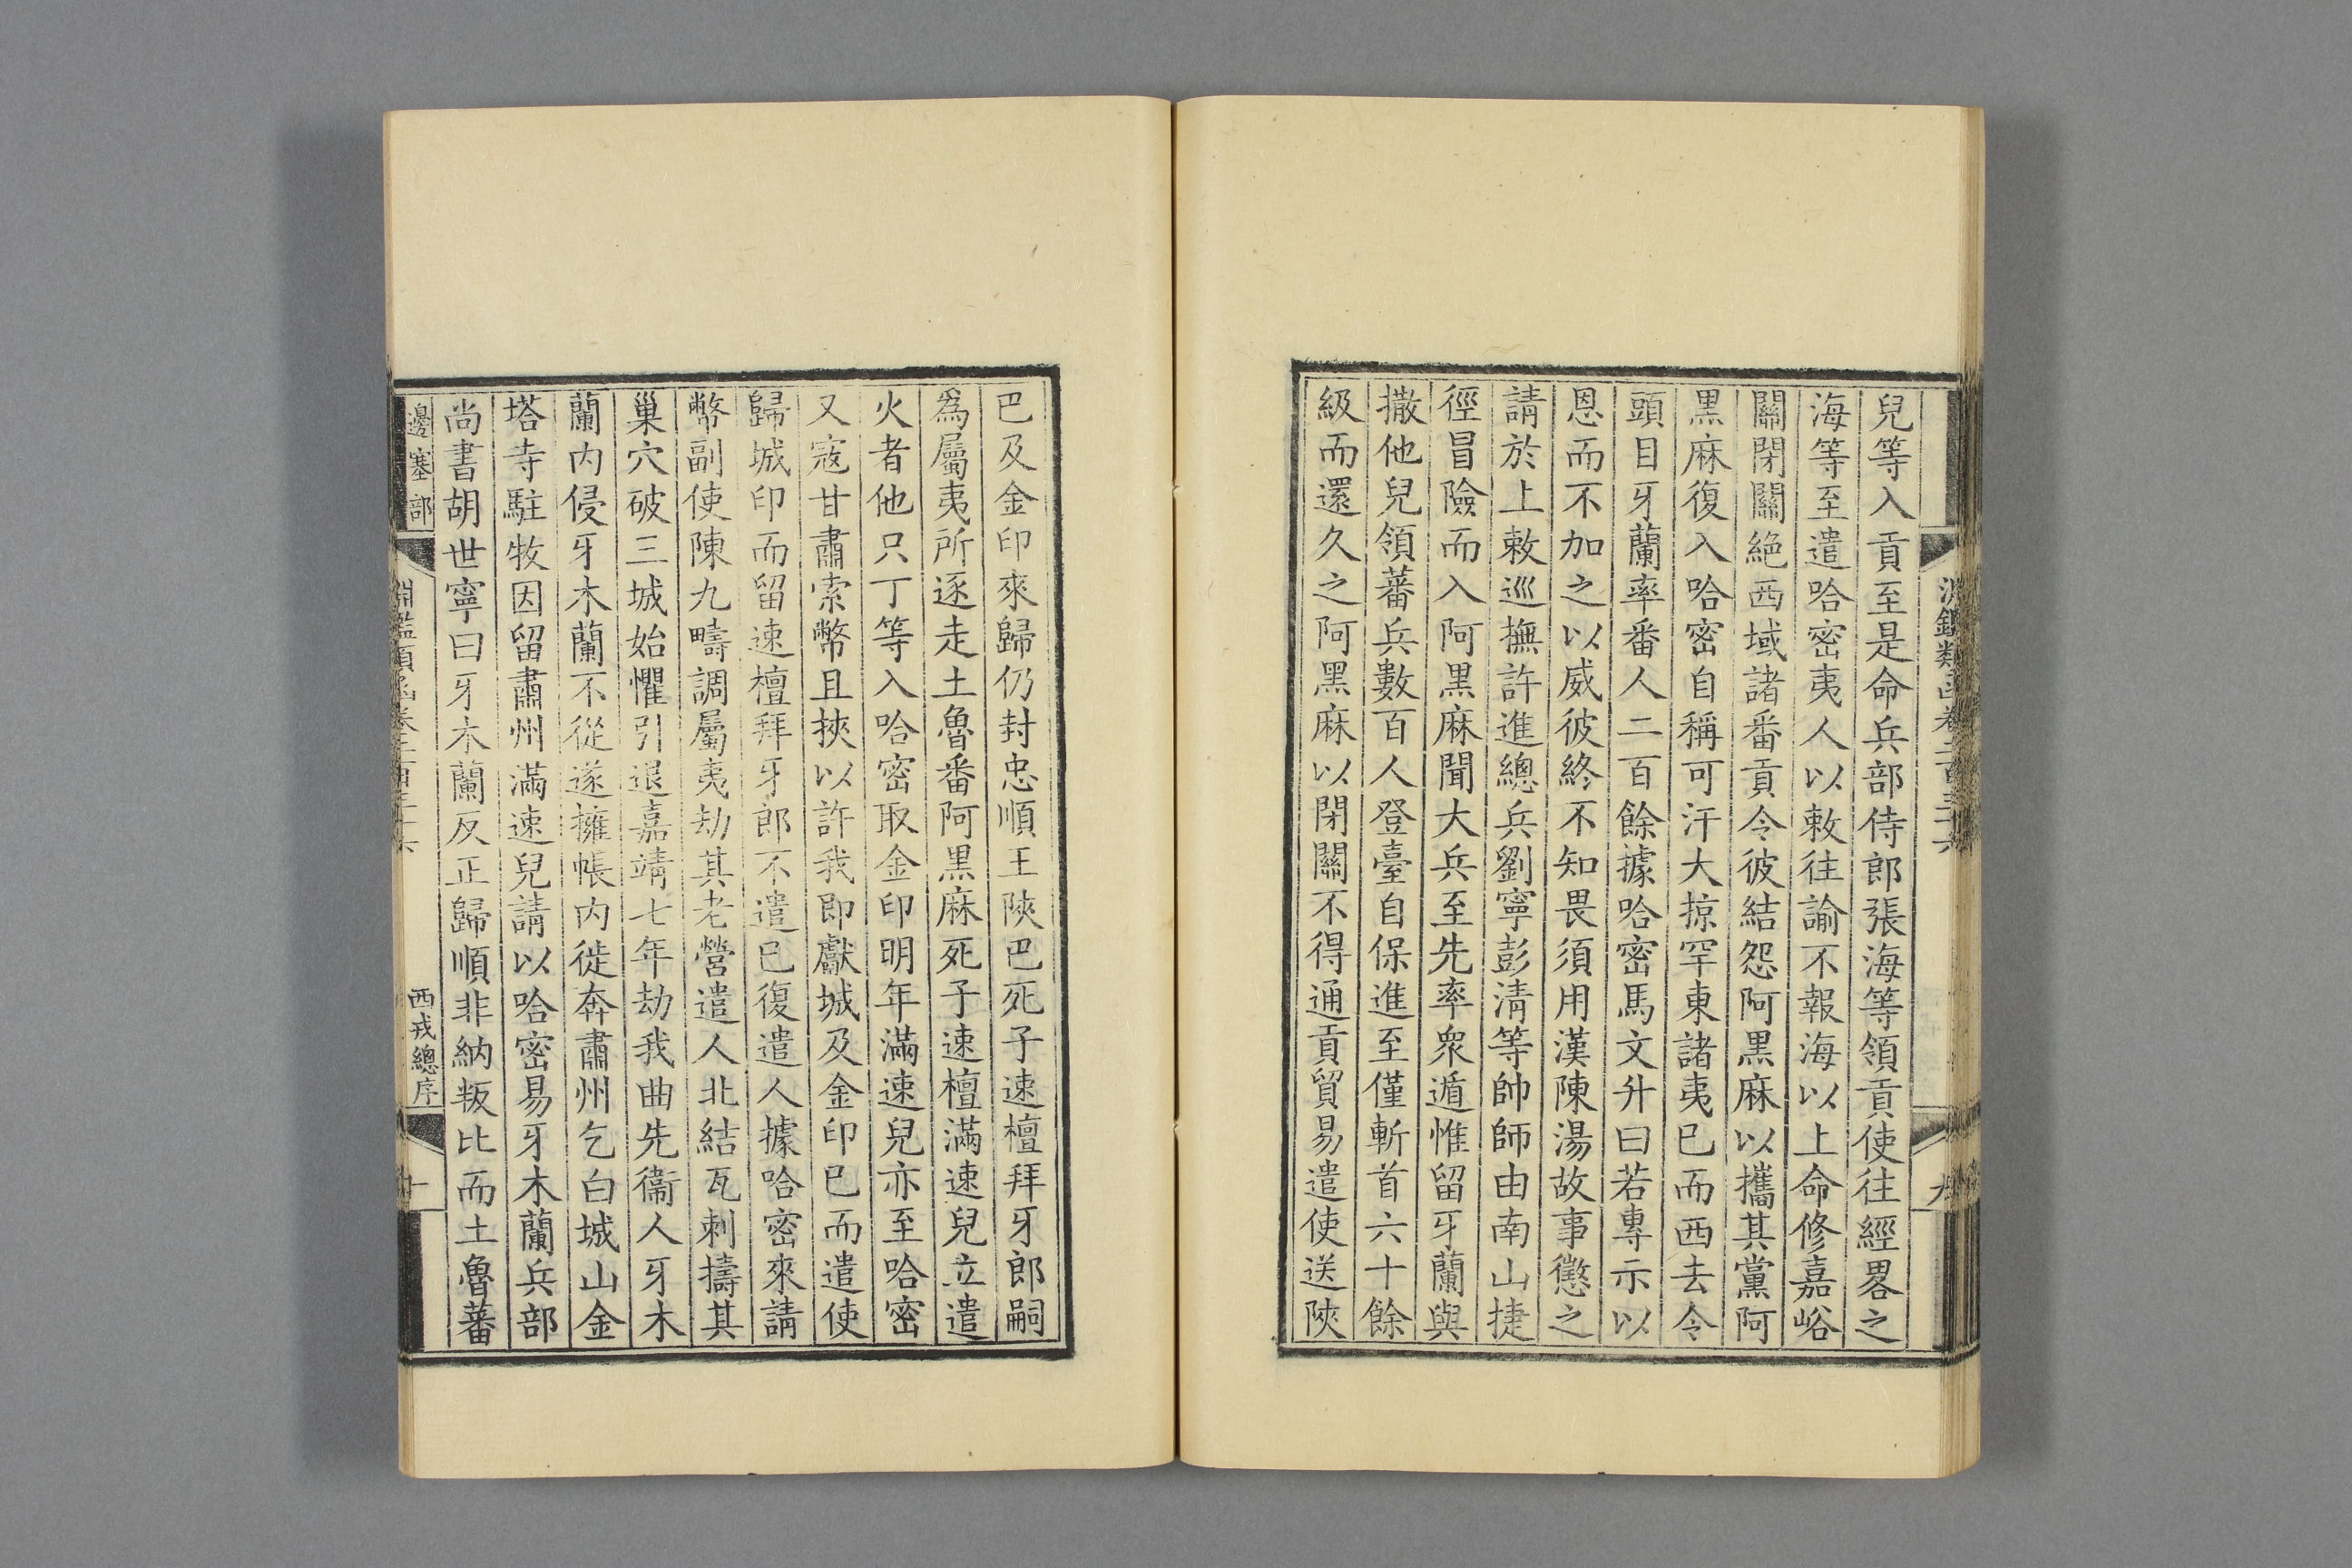 兒等入貢至是命兵部侍郎張海等領貢使往經畧之
海等至遣哈密夷人以敕往諭不報海以上命修嘉峪
關閉關絕西域諸番貢令彼結怨阿黑麻以攜其黨阿
黑麻復入哈密自稱可汗大掠罕東諸夷已而西去令
頭目牙蘭率番人二百餘據哈密馬文升曰若專示以
恩而不加之以威彼終不知畏須用漢陳湯故事懲之
請於上敕巡撫許進總兵劉寧彭清等帥師由南山捷
徑冒險而入阿黑麻聞大兵至先率衆遁惟留牙蘭與
撒他兒領蕃兵數百人登臺自保進至僅斬首六十餘
級而還久之阿黑麻以閉關不得通貢貿易遣使送陝
巴及金印來歸仍封忠順王陝巴死子速檀拜牙郎嗣
為屬夷所逐走土魯番阿黑麻死子速檀滿速兒立遣
火者他只丁等入哈密取金印明年滿速兒亦至哈密
又寇甘肅索幣且挾以許我即獻城及金印已而遣使
歸城印而留速檀拜牙郎不遣已復遣人據哈密來請
幣副使陳九疇調屬夷劫其老營遣人北結瓦剌擣其
巢穴破三城始懼引退嘉靖七年劫我曲先衞人牙木
蘭內侵牙木蘭不從遂擁帳內徙奔肅州乞白城山金
塔寺駐牧因留肅州滿速兒請以哈密易牙木蘭兵部
尚書胡世寧曰牙木蘭反正歸順非納叛比而土魯蕃
邊塞部
西戎總序